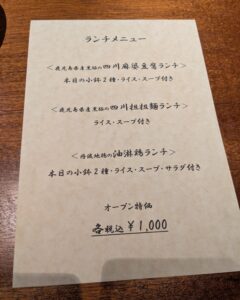 ランチメニュー
＜鹿児島県産黒豚の四川麻婆豆腐ランチ＞
本日の小鉢２種・ライス・スープ付き
＜鹿児島県産黒豚の四川担担麺ランチ＞
ライス・スープ付き
＜丹波地鶏の油淋鶏ランチ＞
本日の小鉢２種・ライス・スープ・サラダ付き
オープン特価
各税込￥1,000